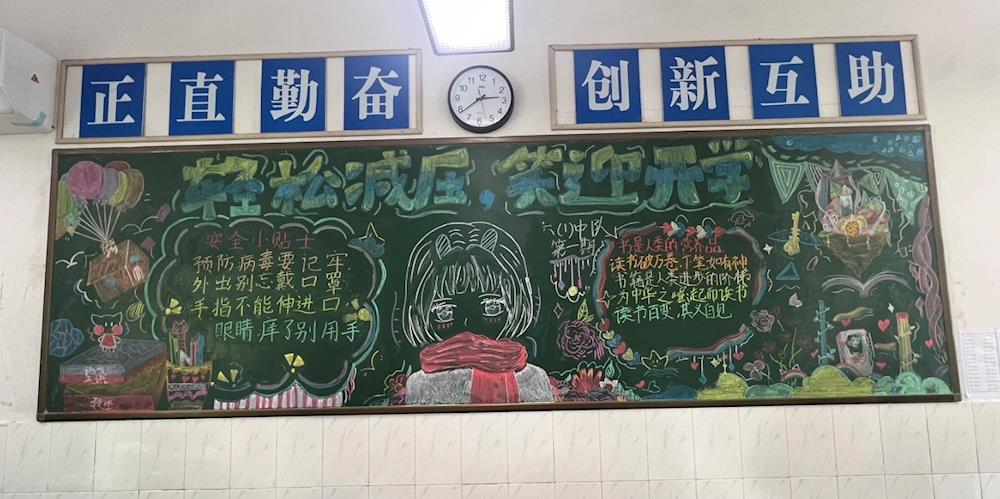 正直勤奋
创新互助
轻松减压,笑迎开学
安全小贴士
预防病毒要记牢
外出别忘戴口罩
手指不能伸进口
眼睛庠了别用手
六(1)中队
第一期
书是人类的营养品
读书破万卷下笔如有神
书籍是人类进步的阶梯
为中华之崛起而读书
读书百变,其义自见
12 1 2 3 4 5 6 7 8 9 10 11